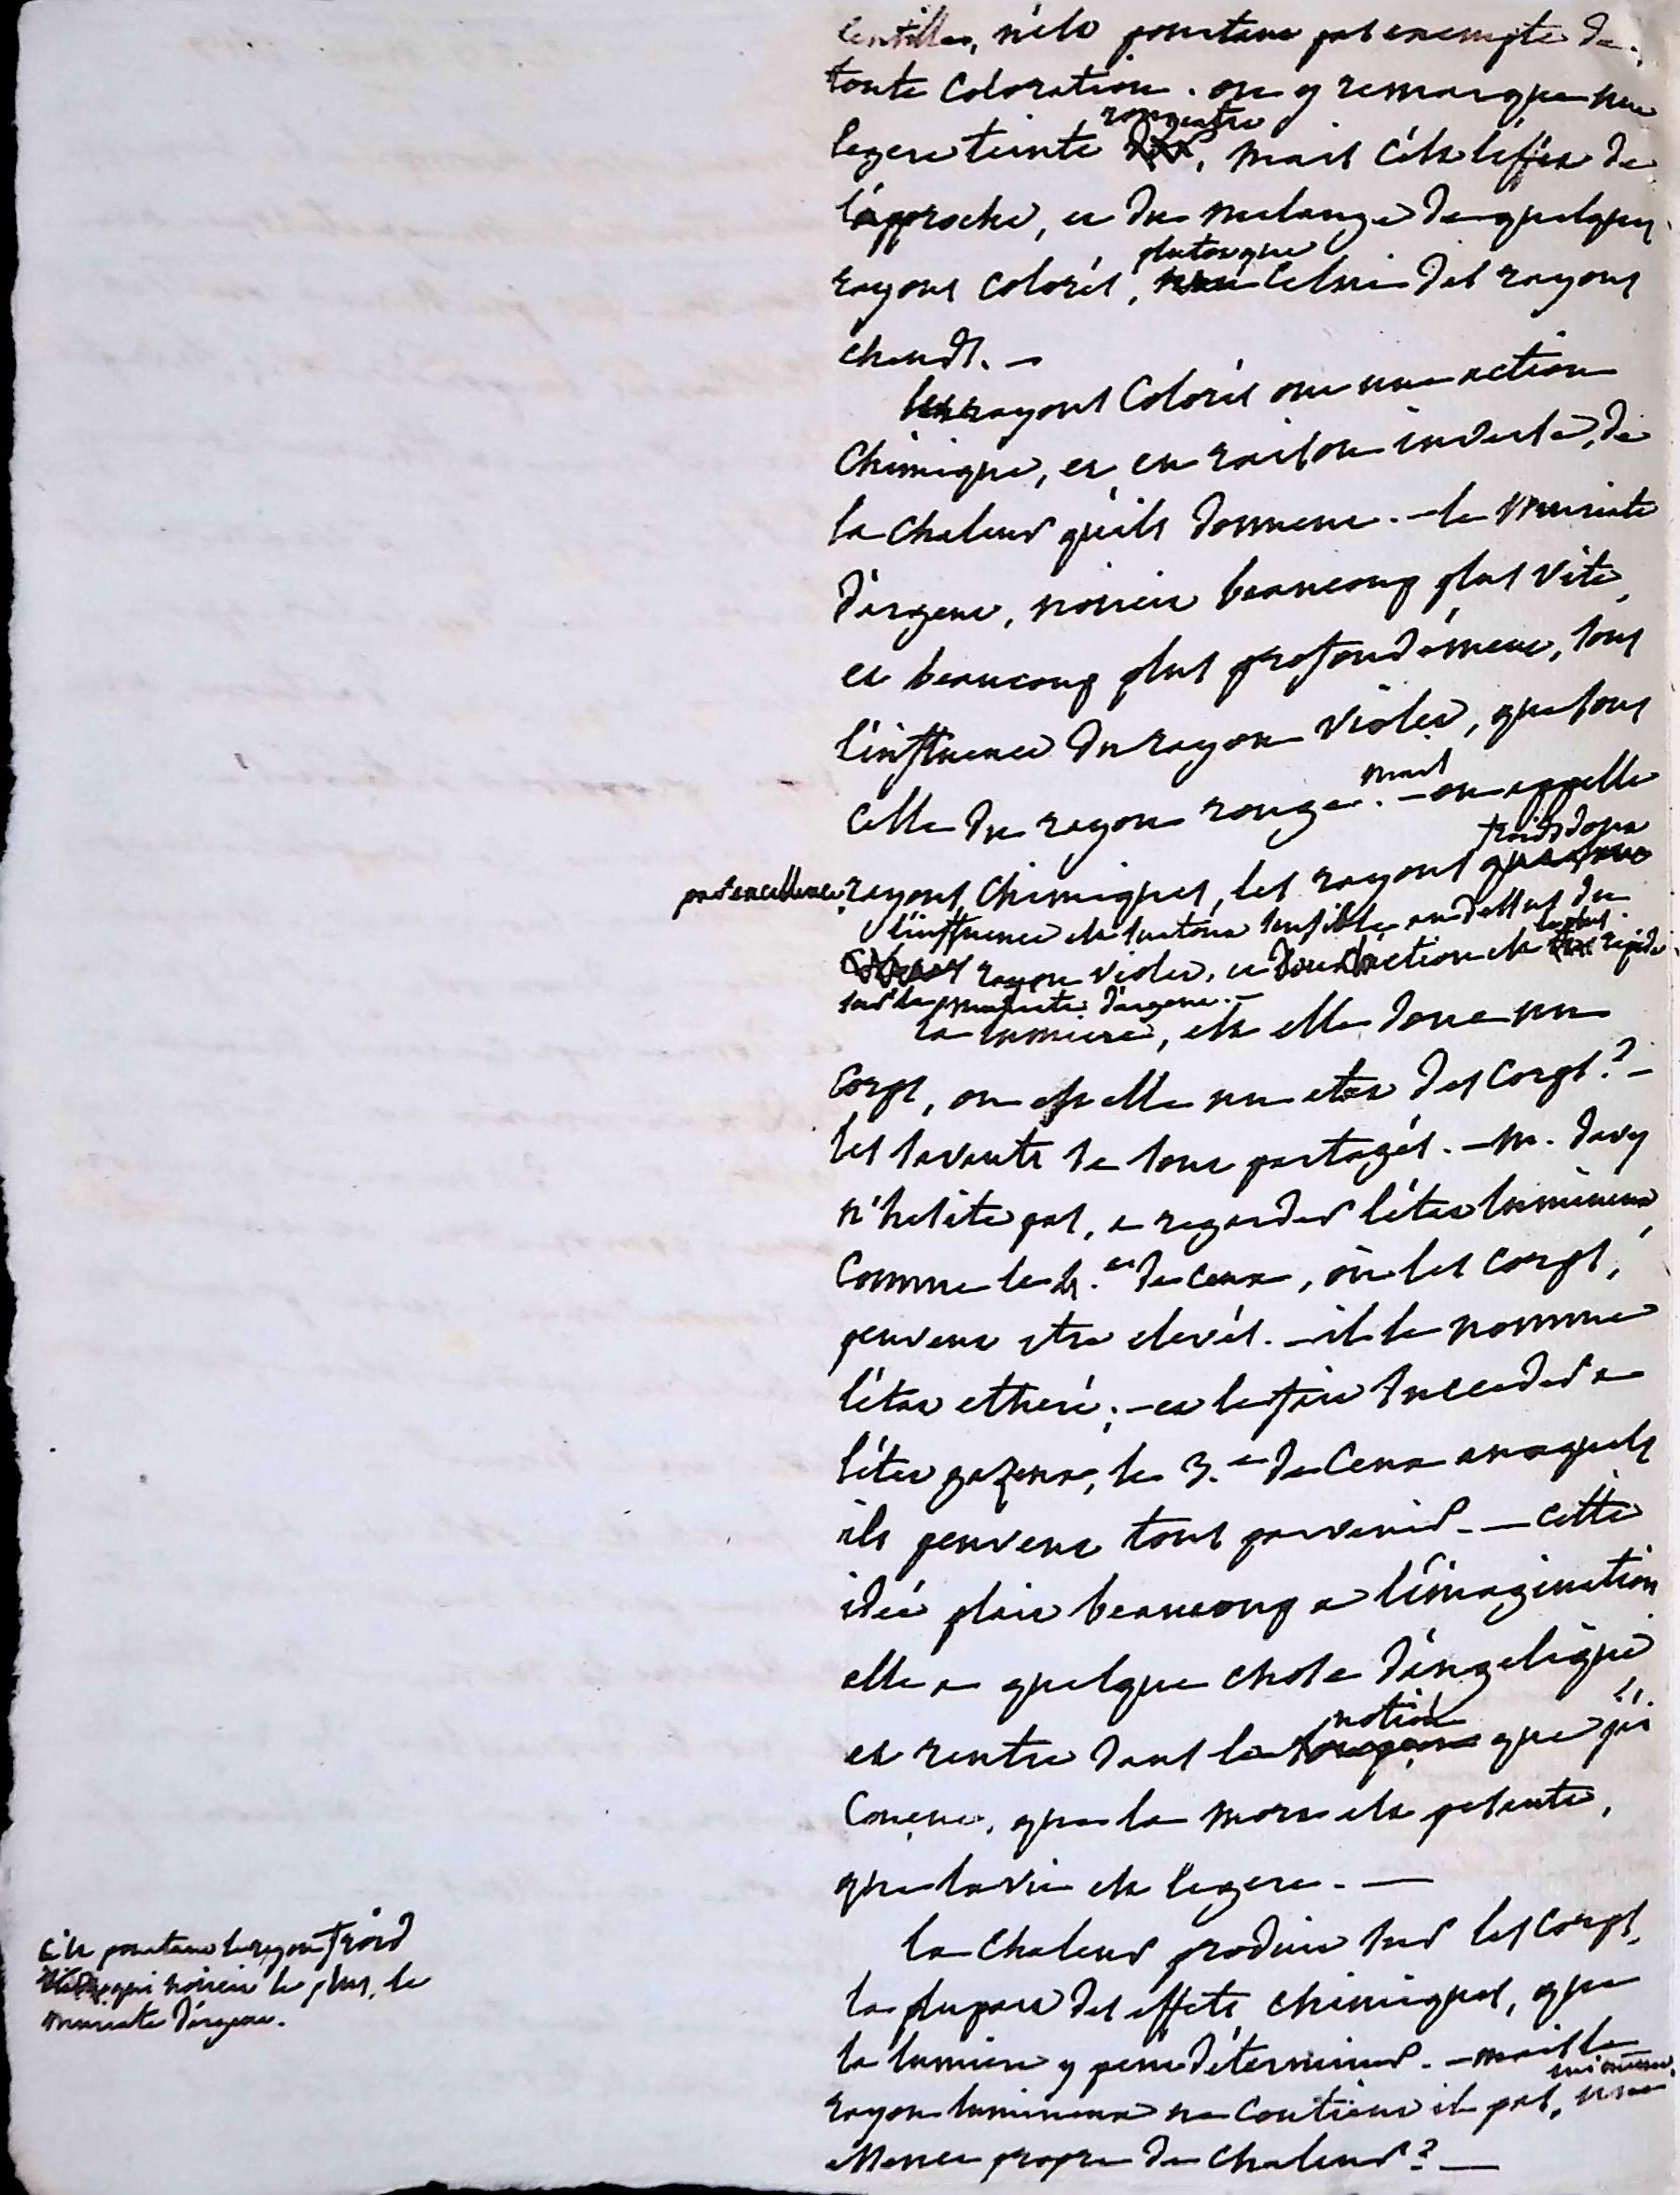 lentilles, n'est pourtant pas exempte de
toute coloration. on y remarque une
legere teinte rougeatre, mais c'est l'effet de
l'approche, et du melange de quelques
rayons colorés, plutot que celui des rayons
chauds. —
les rayons colorés ont une action
chimique, et en raison inverse, de
la chaleur qu'ils donnent. — le muriate
d'argent, noircit beaucoup plus vite,
et beaucoup plus profondément, sous
l'influence du rayon violet, que sous
celle du rayon rouge. — mais on appelle
par excellence, rayons chimiques, les rayons froids dont
l'influence est surtout sensible au dessus du
rayon violet, et dont l'action est la plus rapide
sur le muriate d'argent. —
la lumiere, est elle donc un
corps, ou est elle un etat des corps? —
les savants se sont partagés. — M. davy
n'hesite pas, a regarder l'état lumineux,
comme le 4.e de ceux, où les corps,
peuvent etre elevés. — il le nomme
l'état etheré; — et le fait succeder a
l'état gazeux, le 3.e de ceux auxquels
ils peuvent tous parvenir. — cette
idée plait beaucoup a l'imagination
elle a quelque chose d'angelique
et rentre dans la notion que j'ai
conçue, que la mort est pesante,
que la vie est legere. —
la chaleur produit sur les corps,
la plupart des effets chimiques, que
la lumiere y peut déterminer. — mais le
rayon lumineux ne contient il pas, une
essence propre de chaleur? —
c'est pourtant le rayon froid
qui noircit le plus, le
muriate d'argent.